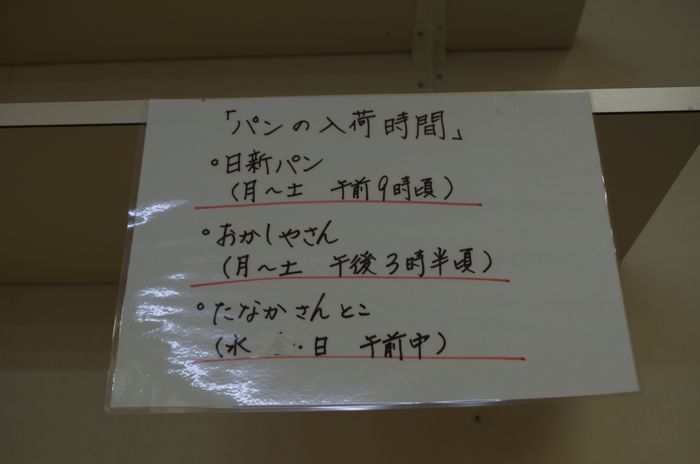 「パンの入荷時間」
○日新パン
（月～土 午前9時頃）
○おかしやさん
（月～土 午後3時半頃）
○たなかさんとこ
（水 ・日 午前中）